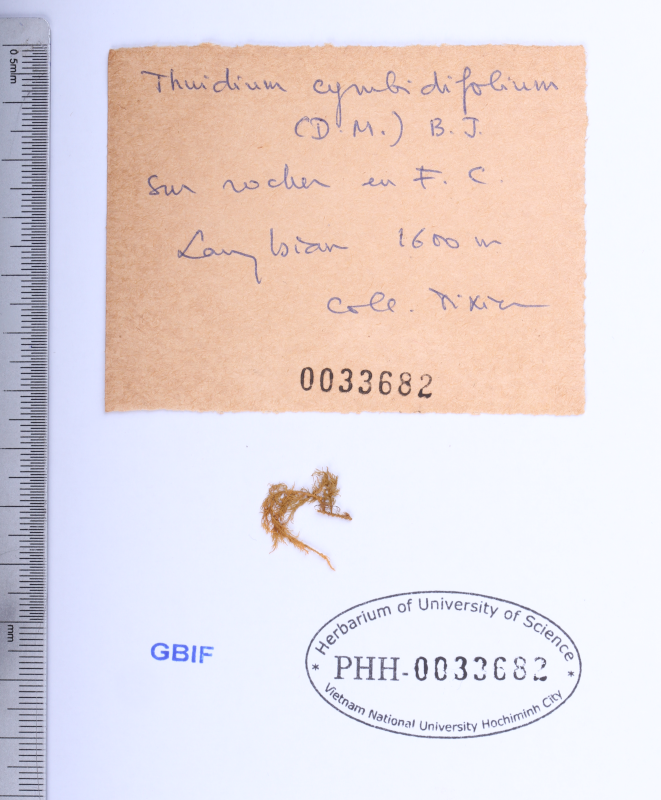 Thuidium cymbidifolium
(D. M.) B. J.
sur rocher en F. C.
Langbian 1600 m
Coll. Tixier
0033682
GBIF
* Herbarium of University of Science *
PHH-0033682
Vietnam National University Hochiminh City
0 5mm
mm